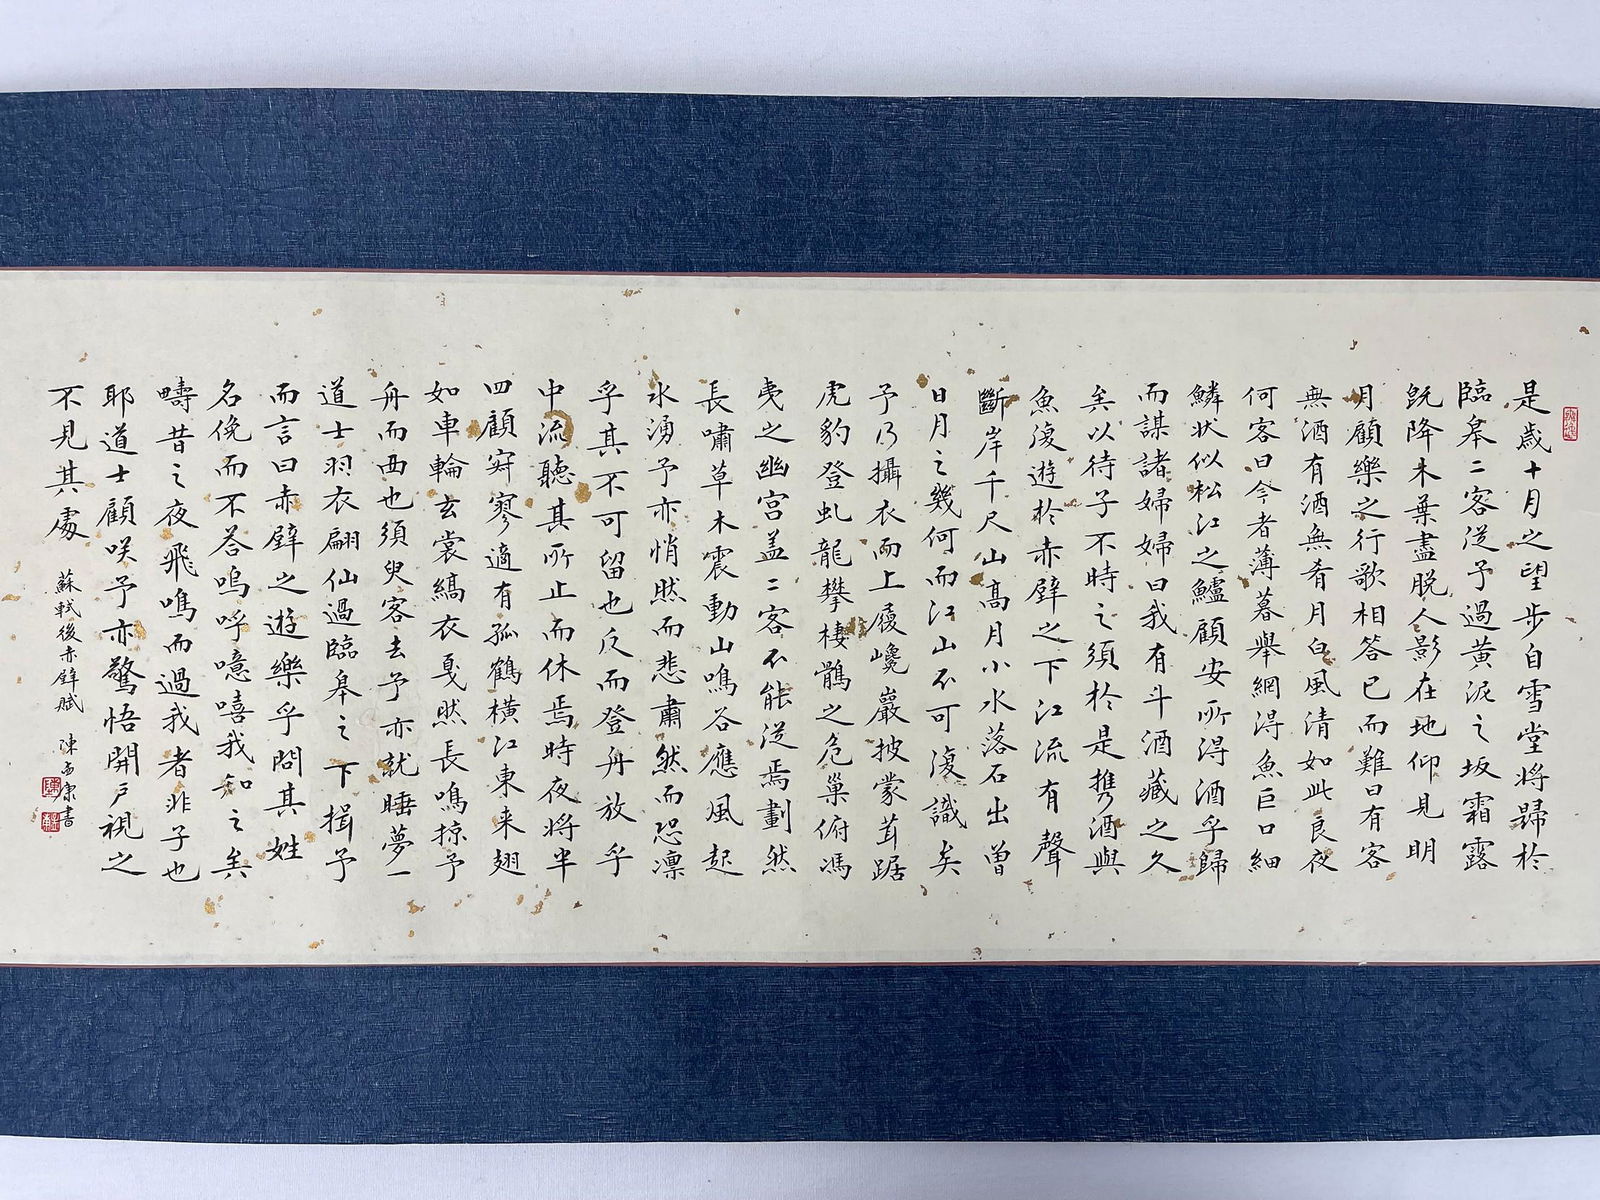 是歲十月之望步自雪堂將歸於
臨皋二客從予過黃泥之坂霜露
既降木葉盡脫人影在地仰見明
月顧樂之行歌相答已而難曰有客
無酒有酒無肴月白風清如此良夜
何客曰今者薄暮舉網得魚巨口細
鱗狀似松江之鱸顧安所得酒乎歸
而謀諸婦婦曰我有斗酒藏之久
矣以待子不時之須於是攜酒與
魚復遊於赤壁之下江流有聲
斷岸千尺山高月小水落石出曾
日月之幾何而江山不可復識矣
予乃攝衣而上履巉巖披蒙茸踞
虎豹登虬龍攀棲鶻之危巢俯馮
夷之幽宮盖二客不能從焉劃然
長嘯草木震動山鳴谷應風起
水湧予亦悄然而悲肅然而恐凛
乎其不可留也反而登舟放乎
中流聽其所止而休焉時夜將半
四顧寂寥適有孤鶴橫江東来翅
如車輪玄裳縞衣戛然長鳴掠予
舟而西也須臾客去予亦就睡夢一
道士羽衣翩仙過臨皋之下揖予
而言曰赤壁之遊樂乎問其姓
名俛而不答嗚呼噫嘻我知之矣
疇昔之夜飛鳴而過我者非子也
耶道士顧咲予亦驚悟開戶視之
不見其處
蘇軾後赤壁賦 陳康書